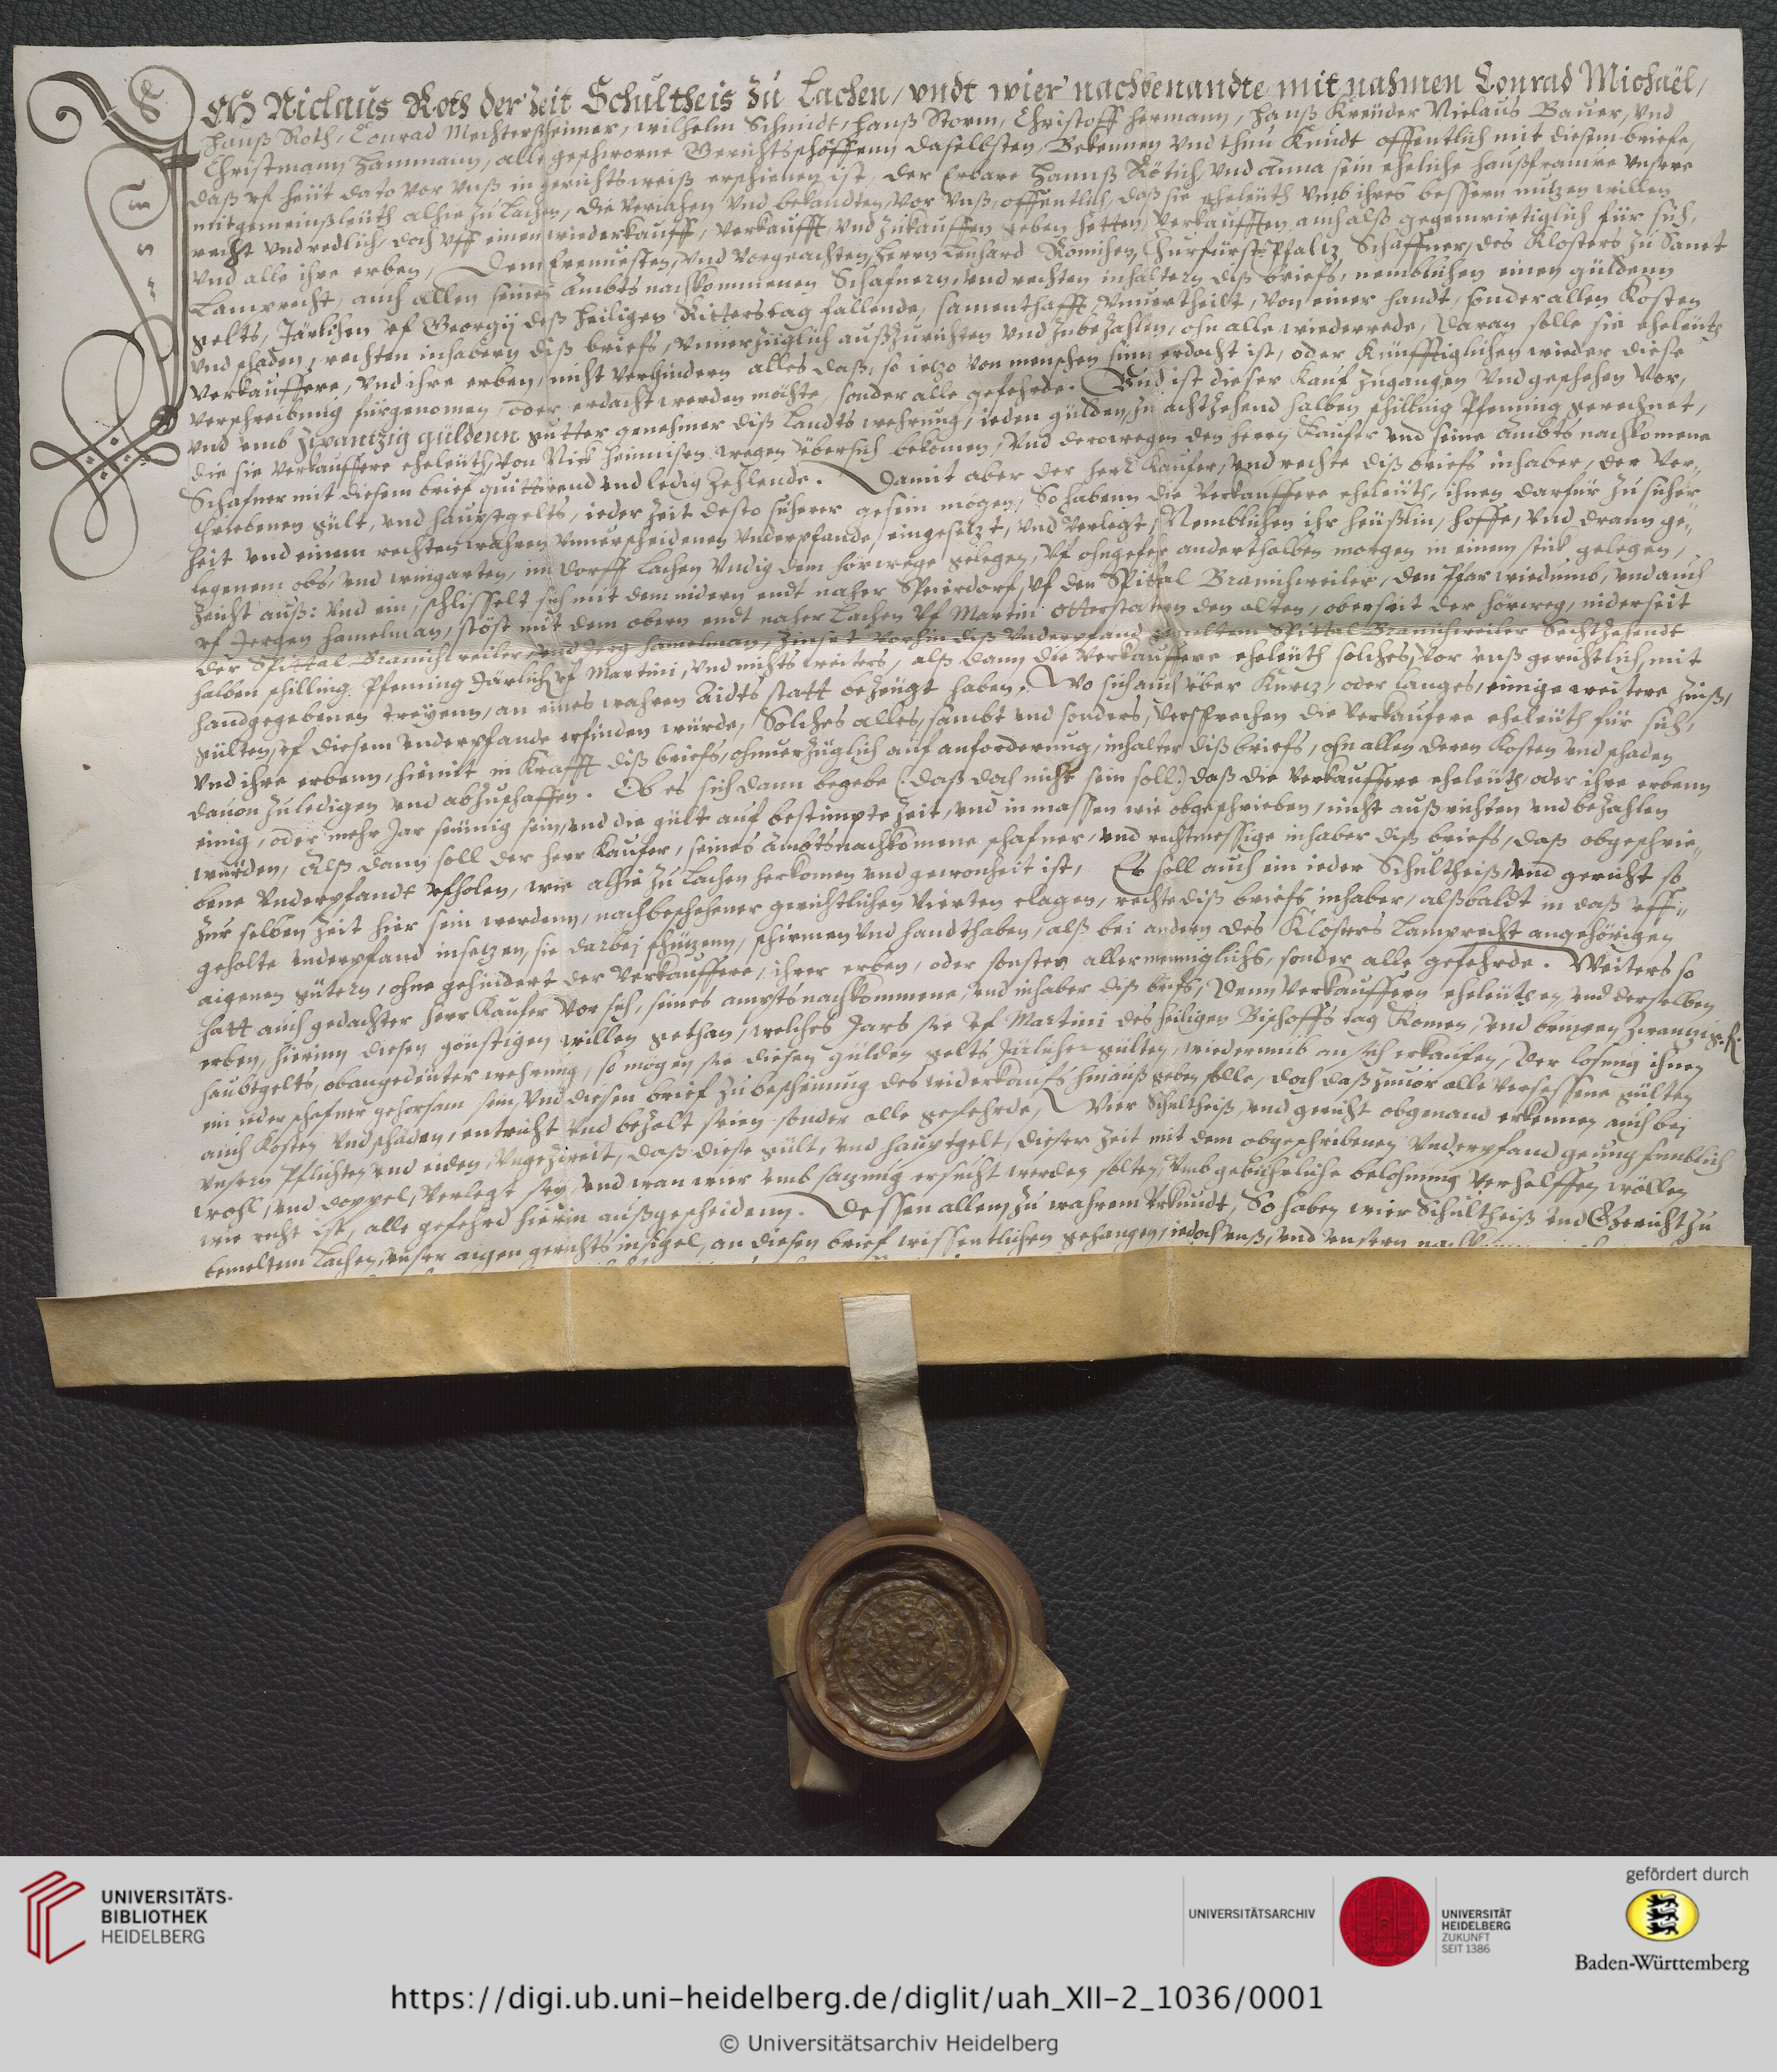 Ich Niclaus Roth der Zeit Schultheis zu Lachen, vndt wier nachbenandte mit nahmen Conrad Michaël,
Hanß Roth, Conrad Mechtersheimer, wilhelm Schmidt, Hanß Storm, Christoff Hermann, Hanß Niclaus Bauer, vnd
Christmann Hanmann, alle geschworne Gerichtsschöffenn daselbsten, Bekennen vnd thun Kundt offentlich mit diesem briefe,
daß vf heüt dato vor vnß in gerichtsweiß erschienen ist, der Erbare Hannß Rötich, vnd Anna sein eheliche haußfrauwe vnsere
mitgemeinßleüth alhie zu Lachen, die veriahen vnd bekandten, vor vnß, offentlich, daß sie eheleüth vmb ihres bessern nutzen willen
recht vnd redlich, doch vff einen wiederkauff, verkaufft, vnd zukauffen geben hetten, verkaufften auch alß gegenwertiglich für sich,
vnd alle ihre erben, Dem Ernuesten, vnd vorgeachten, Herrn Lenhard Romisen, Churfürst: Pfaltz Schaffner, des Klosters zu Sanct
Lamprecht, auch allen seines Ambts nachkommenen Schafnern, vnd rechten inhaltern diß briefs, nemblichen einen güldenn
gelts, Järlichen vf Georgij deß heiligen Ritterstag fallende, samenthafft, vnuertheilt, von einer handt, sonder allen Kosten
vnd schaden, rechten inhabern diß briefs, vnuerzüglich außzurichten vnd zubezahlen, ohn alle wiederrede, daran solle sie eheleüth
verkauffere, vnd ihre erben, nicht verhindern alles daß, so ietzo von menschen sinn erdacht ist, oder Künfftiglichen wieder diese
verschreibung fürgenomen, oder erdacht werden möchte, sonder alle gefehrde. Vnd ist dieser Kauf zugangen vnd geschehen vor,
vnd vmb zwantzig güldenn gutter genehmer diß Landts wehrung, ieden gülden, zu achtzehend halben schilling Pfenning gerechnet,
die sie verkauffere eheleüth, von wegen übersich bekomen, vnd derowegen den herrn Kaufer vnd seine Ambts nachkomene
Schafner mit diesem brief quittirend vnd ledig zehlende. Damit aber der herr Kaufer, vnd rechte diß briefs inhaber, der ver„
schriebenen gült, vnd hauptgelts, ieder zeit desto sicherer gesein mögen, So habenn die verkauffere eheleüth, ihnen darfür zu sicher
heit vnd einem rechten wahren vnuerscheidenen vnderpfande, eingesetzt, vnd verlegt, Nemblichen ihr heüßlin, hoffe, vnd drann ge„
legenem obs, vnd wingarten, im dorff Lachen vndig dem hörwege gelegen, vf ohngefehr anderthalben morgen in einem stück gelegen,
zeicht auß: vnd ein, schlisselt sich mit dem nidern endt naher Speierdorf, vf den Spittal Branchweiler, den Pfarwiedumb, vnd auch
vf Jergen Hamelman, stöst mit dem obern endt naher Lachen vf Martini Otterstatten den alten, oberseit der hörweg, niderseit
der Spittal Branchweiler, vnd Jerg Hamelman, zinset vorhin diß vnderpfand gemeltem Spittal Branchweiler Sechtzehendt
halben schilling Pfenning Järlich vf Martini, vnd nichts weiters, alß dann die verkauffere eheleüth solches, vor vnß gerichtlich, mit
handgegebenen treüenn, an eines wahren Aidts statt bezeügt haben. Wo sich auch über Kurtz, oder langes, einige weitere zinß,
gülten, vf diesem vnderpfande erfinden würde, Solches alles, sambt vnd sonders, versprechen die verkaufere eheleüth für sich,
vnd ihre erbenn, hiemit in Krafft diß briefs, ohnuerzüglich auf anforderung, inhalter diß briefs, ohn allen deren Kosten vnd schaden
dauon zuledigen vnd abzuschaffen. Ob es sich dann begebe (: daß doch nicht sein soll :) daß die verkauffere eheleüth, oder ihre erbenn
einig, oder mehr Jar seümig sein, vnd die gülte auf bestimpte zeit, vnd in massen wie obgeschrieben, nicht außrichten vnd bezahlen
würden, Alß dann soll der herr Kaufer, seines Ambtsnachkomene schafner, vnd rechtmessige inhaber diß briefs, daß obgeschrie„
bene vnderpfandt vfholen, wie alhie zu Lachen herkomen vnd gewonheit ist, Es soll auch ein ieder Schultheiß, vnd gericht so
zur selben zeit hier sein werdenn, nach beschehener gerichtlichen vierten clagen, rechte diß briefs inhaber, alßbaldt in daß vff„
geholte vnderpfand insetzen, sie darbej schützenn, schirmen vnd handthaben, alß bei andern des Klosters Lamprecht angehörigen
aigenen gütern, ohne gehindert der verkauffere, ihrer erben, oder sonsten allermenniglichs, sonder alle gefehrde. Weiters so
hatt auch gedachter herr Kaufer vor sich, seines amptsnachkommene, vnd inhaber diß briefs, denn verkauffern eheleüthen, vnd derselben
erben, hierinn diesen günstigen willen gethan, welches Jars sie vf Martini des heiligen Bischoffs tag Komen, vnd bringen zwantzig fl.
haubtgelts, obangedeüter wehrung, so mögen sie diesen gülden gelts Järlicher gülten, wiederumb an sich erkaufen, der losung ihnen
ein ieder schafner gehorsam sein, vnd diesen brief zu bescheinung des widerkaufs hinauß geben solle, doch daß zuuor alle versessene gülten
auch Kosten vnd schaden, entricht vnd bezalt seien sonder alle gefehrde, Wier Schultheiß, vnd gericht obgenand erkennen auch bej
vnsern Pflichten vnd eiden, vngezweit, daß diese gült, vnd hauptgelt, dieser zeit mit dem obgeschribenen vnderpfand genug
wohl, vnd doppel, verlegt sey vnd wan wier vmb satzung ersucht werden solten, vmb gebührliche belohnung verhelffen wöllen
wie recht ist, alle gefehrd hierin außgescheidenn. Dessen allem zu wahrem vrkundt, So haben wier Schultheiß vnd Gericht zu
bemeltem Lachen, vnser aigen gerichts insigel, an diesen brief wissentlichen gehangen, iedoch vnß, vnd vnsern
UNIVERSITÄTS-
BIBLIOTHEK
HEIDELBERG
UNIVERSITÄTSARCHIV
UNIVERSITÄT
HEIDELBERG
ZUKUNFT
SEIT 1386
gefördert durch
Baden-Württemberg
https://digi.ub.uni-heidelberg.de/diglit/uah_XII-2_1036/0001
© Universitätsarchiv Heidelberg